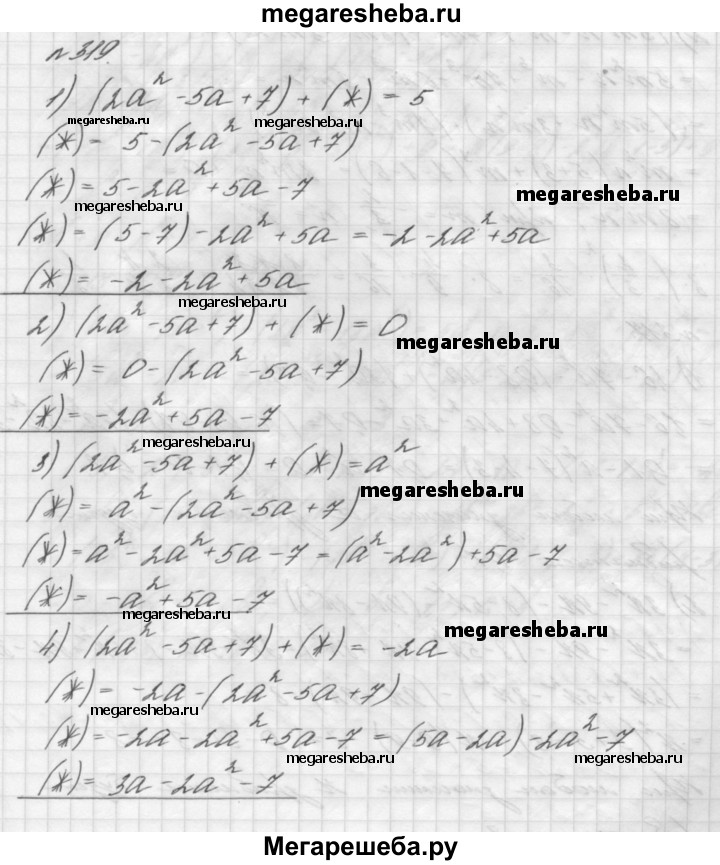 megaresheba.ru
№319.
1) (2a² - 5a + 7) + (*) = 5
megaresheba.ru megaresheba.ru
(*) = 5 - (2a² - 5a + 7)
(*) = 5 - 2a² + 5a - 7
megaresheba.ru
megaresheba.ru
(*) = (5 - 7) - 2a² + 5a = -2 - 2a² + 5a
(*) = -2 - 2a² + 5a
megaresheba.ru
2) (2a² - 5a + 7) + (*) = 0
megaresheba.ru
(*) = 0 - (2a² - 5a + 7)
(*) = -2a² + 5a - 7
megaresheba.ru
3) (2a² - 5a + 7) + (*) = a²
megaresheba.ru
(*) = a² - (2a² - 5a + 7)
(*) = a² - 2a² + 5a - 7 = (a² - 2a²) + 5a - 7
(*) = -a² + 5a - 7
megaresheba.ru
megaresheba.ru
4) (2a² - 5a + 7) + (*) = -2a
(*) = -2a - (2a² - 5a + 7)
megaresheba.ru
(*) = -2a - 2a² + 5a - 7 = (5a - 2a) - 2a² - 7
megaresheba.ru megaresheba.ru
(*) = 3a - 2a² - 7
Мегарешеба.ру